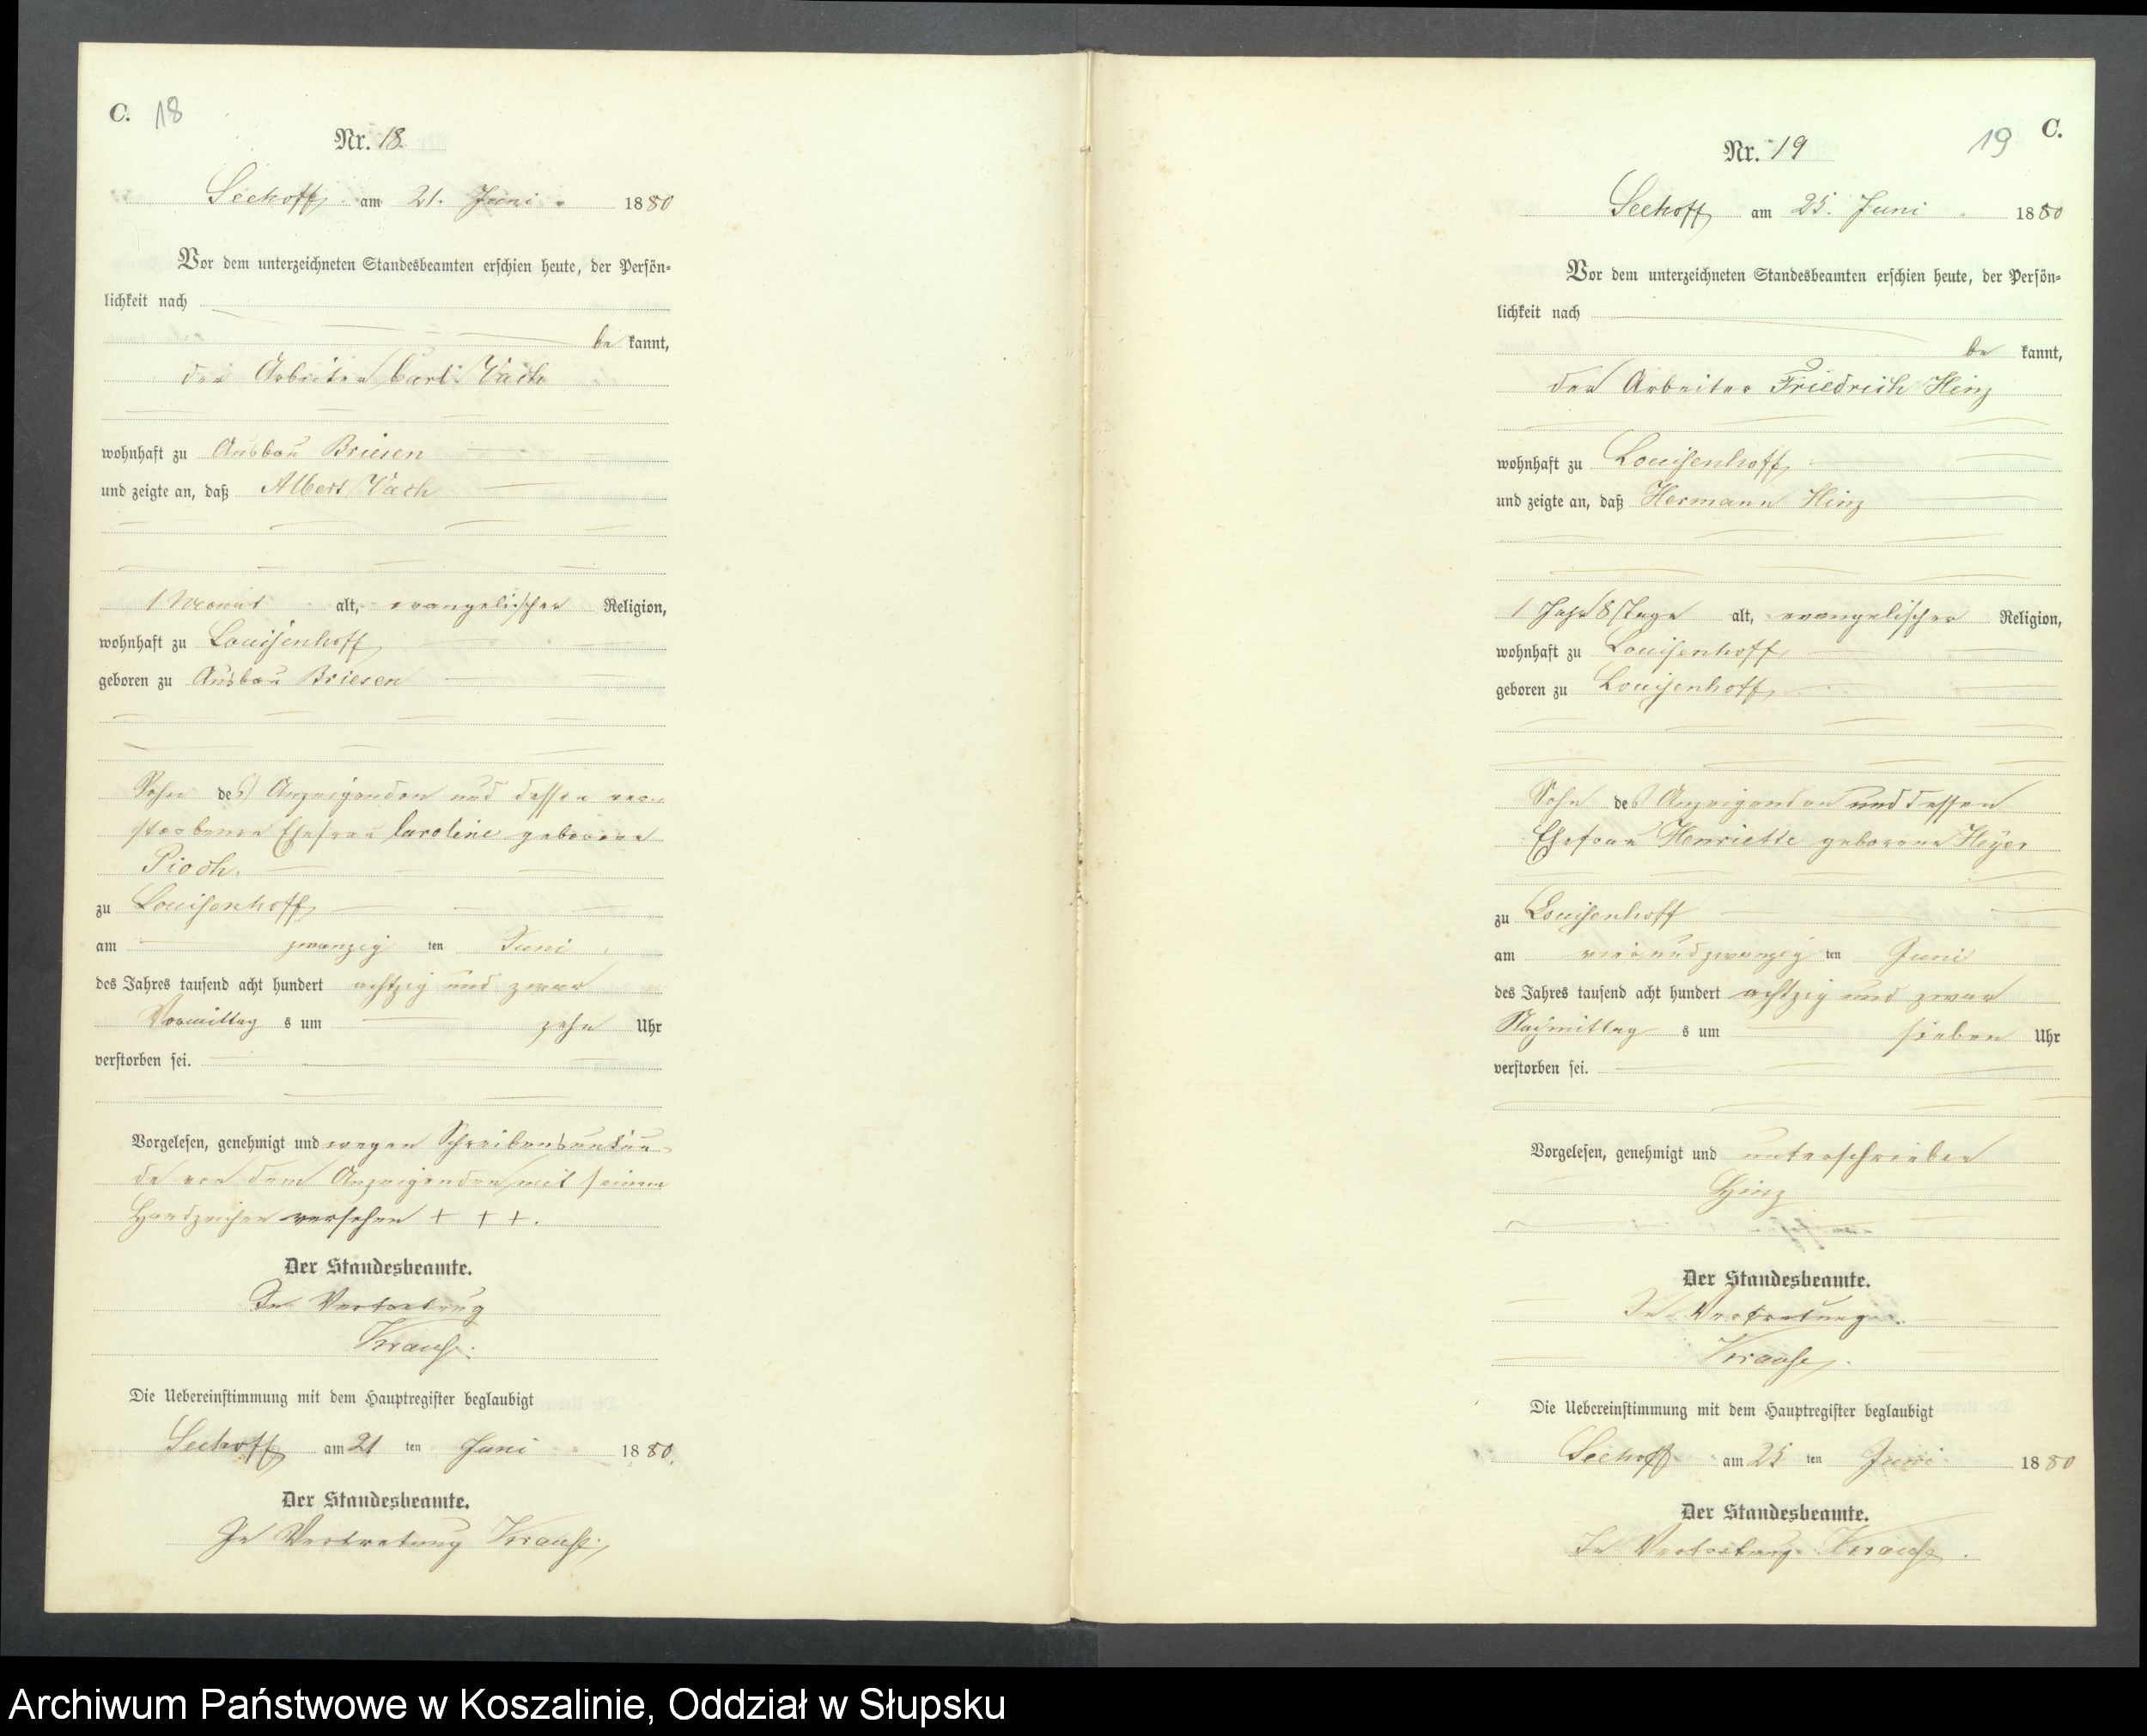 C. 18
Nr. 18
Seehoff am 21. Juni 1880
Vor dem unterzeichneten Standesbeamten erschien heute, der Persön=
lichkeit nach
be kannt,
der Arbeiter Carl
wohnhaft zu Ausbau Briesen
und zeigte an, daß Albert
1 Monat alt, evangelischer Religion,
wohnhaft zu Louisenhoff
geboren zu Ausbau Briesen
Sohn des Anzeigenden und dessen ver=
storbenen Ehefrau Caroline geborene
Pioch.
zu Louisenhoff
am zwanzig ten Juni
des Jahres tausend acht hundert achtzig und zwar
Vormittag s um zehn Uhr
verstorben sei.
Vorgelesen, genehmigt und wegen Schreibensunkun=
de von dem Anzeigenden mit seinem
Handzeichen versehen + + +.
Der Standesbeamte.
In Vertretung
Krause.
Die Uebereinstimmung mit dem Hauptregister beglaubigt
Seehoff am 21 ten Juni 1880.
Der Standesbeamte.
In Vertretung Krause.
C.
19
Nr. 19
Seehoff am 25. Juni 1880
Vor dem unterzeichneten Standesbeamten erschien heute, der Persön=
lichkeit nach
be kannt,
der Arbeiter Friedrich Hinz
wohnhaft zu Louisenhoff
und zeigte an, daß Hermann Hinz
1 Jahr 8 Tage alt, evangelischer Religion,
wohnhaft zu Louisenhoff
geboren zu Louisenhoff
Sohn des Anzeigenden und dessen
Ehefrau Henriette geborene Heyer
zu Louisenhoff
am vierundzwanzig ten Juni
des Jahres tausend acht hundert achtzig und zwar
Nachmittag s um sieben Uhr
verstorben sei.
Vorgelesen, genehmigt und unterschrieben
Hinz
Der Standesbeamte.
In Vertretung.
Krause.
Die Uebereinstimmung mit dem Hauptregister beglaubigt
Seehoff am 25 ten Juni 1880
Der Standesbeamte.
In Vertretung Krause.
Archiwum Państwowe w Koszalinie, Oddział w Słupsku